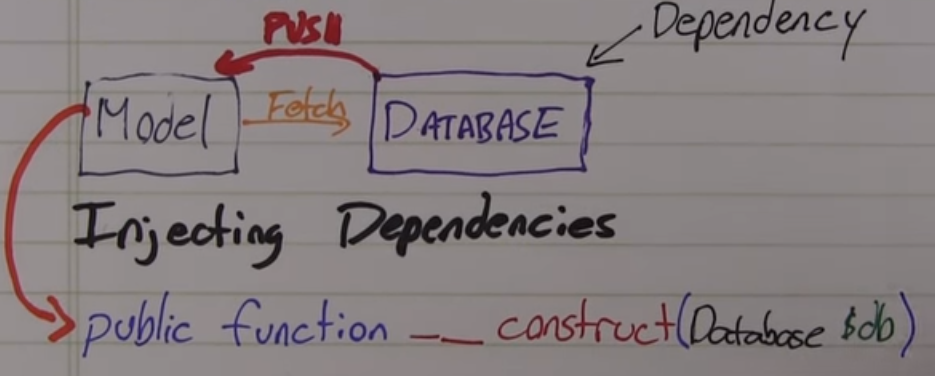 PUSH
Dependency
Model
Fetch
DATABASE
Injecting Dependencies
public function __construct(Database $db)